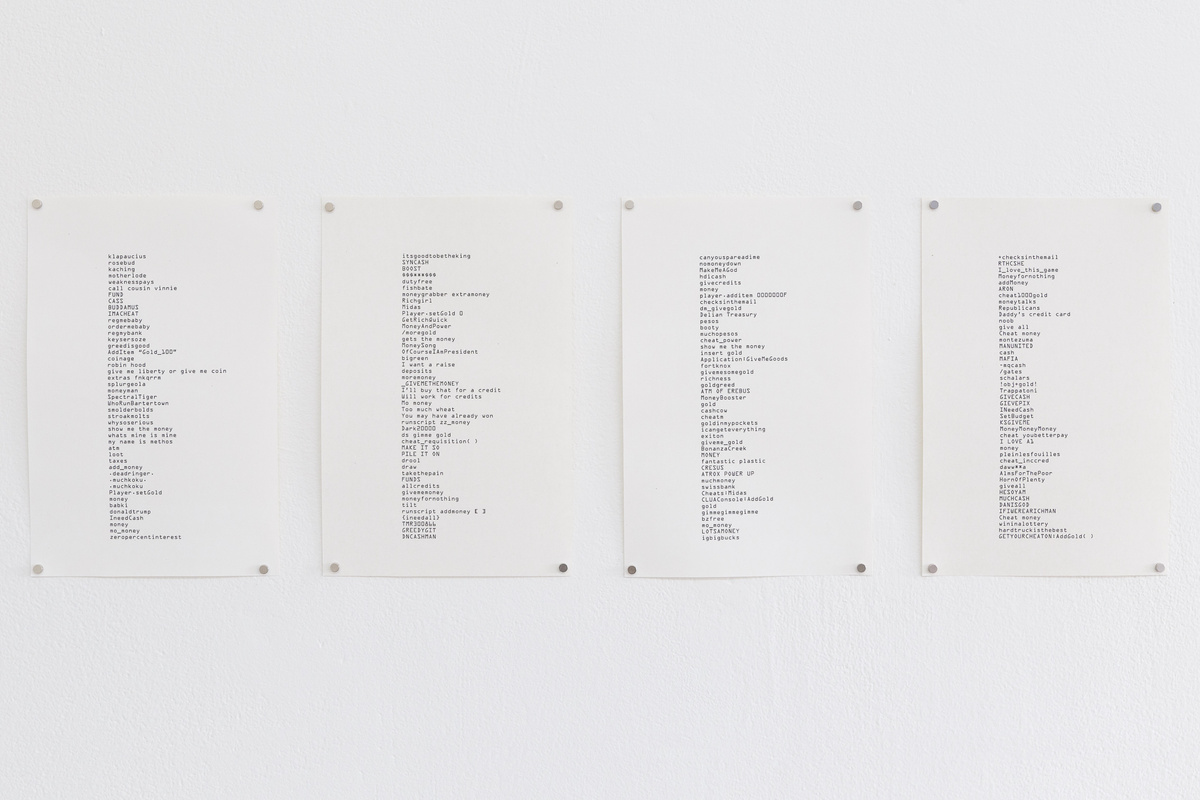 klapaucius
rosebud
kaching
motherlode
weaknesspays
call cousin vinnie
FUND
CASS
BUDDAMUS
IMACHEAT
regmebaby
ordermebaby
regmybank
keysersoze
greedisgood
AddItem "Gold_100"
coinage
robin hood
give me liberty or give me coin
extras fnkqrrm
splurgeola
moneyman
SpectralTiger
WhoRunBartertown
smolderbolds
stroakmolts
whysoserious
show me the money
whats mine is mine
my name is methos
atm
loot
taxes
add_money
-deadringer-
-muchkoku-
-muchkoku
Player-setGold
money
babki
donaldtrump
IneedCash
money
mo_money
zeropercentinterest
itsgoodtobetheking
SYNCASH
BOOST
dutyfree
fishbate
moneygrabber extramoney
Richgirl
Midas
Player-setGold 0
GetRichQuick
MoneyAndPower
/moregold
gets the money
MoneySong
OfCourseIAmPresident
bigreen
I want a raise
deposits
moremoney
_GIVEMETHEMONEY
I'll buy that for a credit
Will work for credits
Mo money
Too much wheat
You may have already won
runscript zz_money
Dark20000
ds gimme gold
cheat_requisition( )
MAKE IT SO
PILE IT ON
drool
draw
takethepain
FUNDS
allcredits
givememoney
moneyfornothing
tilt
runscript addmoney E 3
(ineedall)
GREEDYGIT
DNCASHMAN
canyouspareadime
nomoneydown
MakeMeAGod
hdlcash
givecredits
money
player-additem 0000000F
checksinthemail
dm_givegold
Delian Treasury
pesos
booty
muchopesos
cheat_power
show me the money
insert gold
Application|GiveMeGoods
fortknox
givemesomegold
richness
goldgreed
ATM OF EREBUS
MoneyBooster
gold
cashcow
cheatm
goldinmypockets
icangeteverything
exiton
giveme_gold
BonanzaCreek
MONEY
fantastic plastic
CRESUS
ATROX POWER UP
muchmoney
swissbank
Cheats|Midas
CLUAConsole|AddGold
gold
gimmegimmegimme
bzfree
mo_money
LOTSAMONEY
igbigbucks
+checksinthemail
RTHCSHE
I_love_this_game
Moneyfornothing
addMoney
ARON
cheat1000gold
moneytalks
Republicans
Daddy's credit card
noob
give all
Cheat money
montezuma
MANUNITED
cash
MAFIA
-mqcash
/gates
schalars
!obj+gold!
Trappatoni
GIVECASH
GIEVEPIX
INeedCash
SetBudget
KSGIVEME
MoneyMoneyMoney
cheat youbetterpay
I LOVE A1
money
pleinlesfouilles
cheat_inccred
daww**a
AlmsForThePoor
HornOfPlenty
giveall
HESOYAM
MUCHCASH
DANISGOD
IFIWEREARICHMAN
Cheat money
wininalottery
hardtruckisthebest
GETYOURCHEATON|AddGold( )